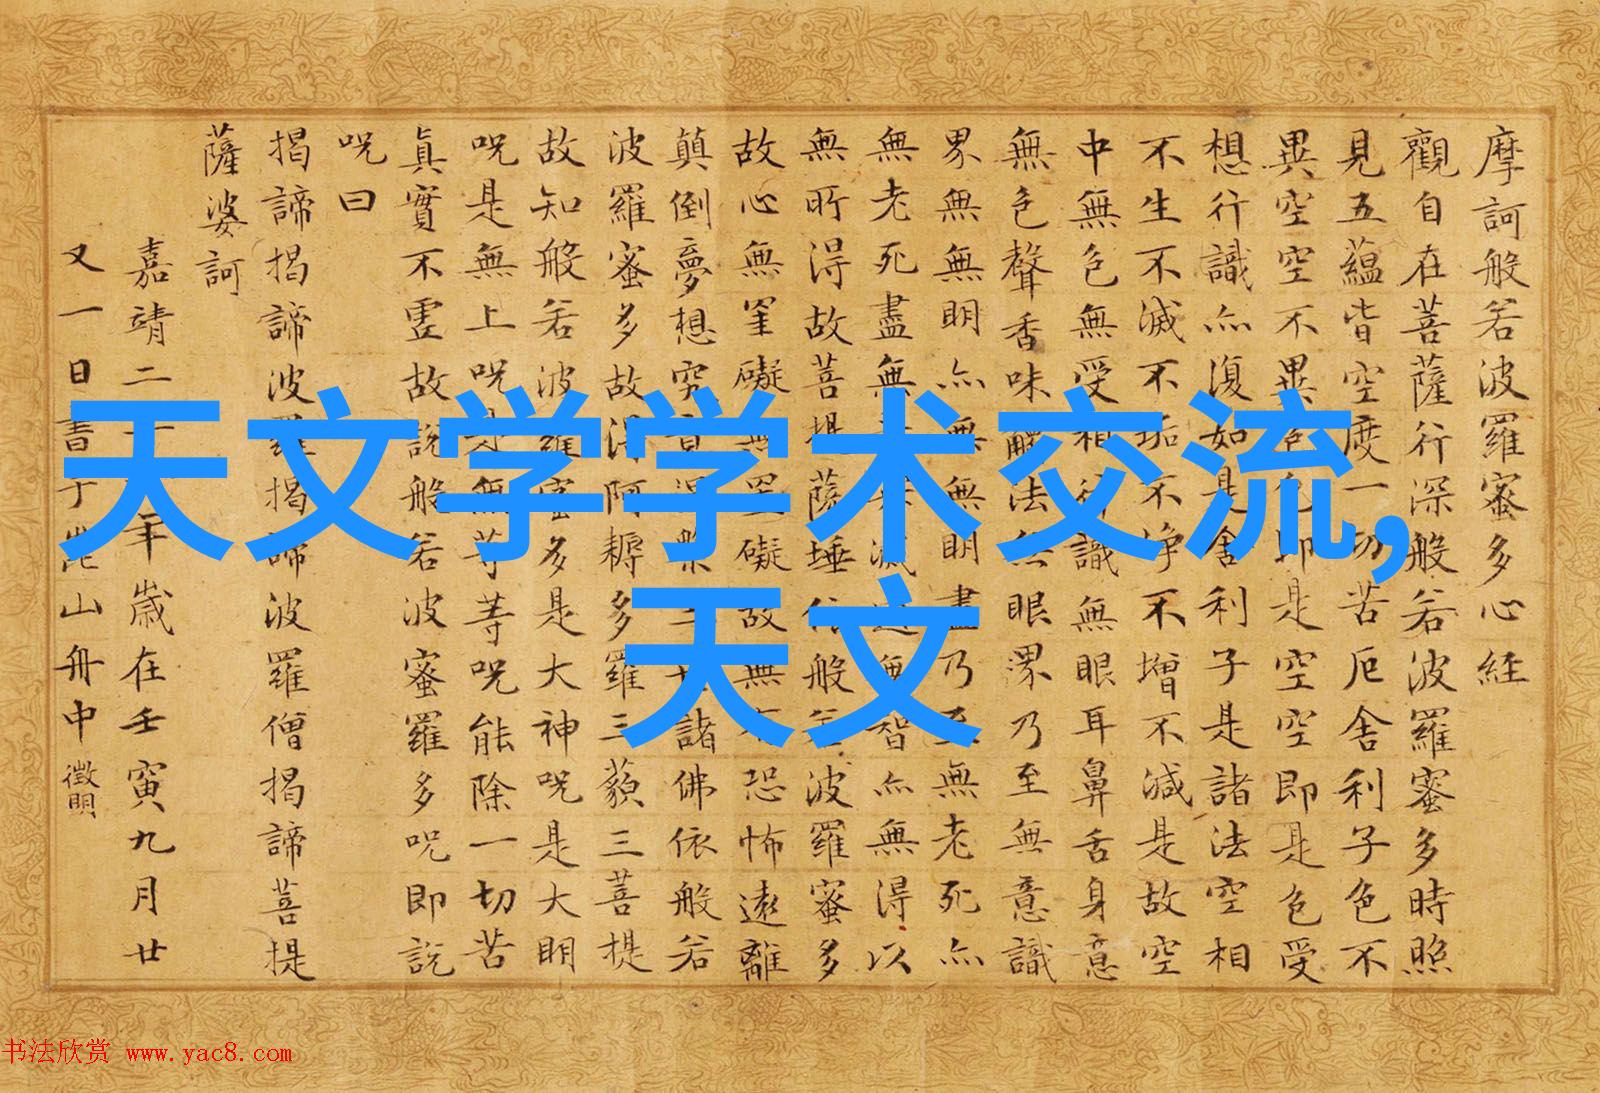 天文学学术交流,
天文
摩訶般若波羅蜜多心経
觀自在菩薩行深般若波羅蜜多時照
見五蘊皆空度一切苦厄舍利子色不
異空空不異色色即是空空即是色受
想行識亦復如是舍利子是諸法空相
不生不滅不垢不淨不增不減是故空
中無色無受想行識無眼耳鼻舌身意
無色聲香味觸法無眼界乃至無意識
界無無明亦無無明盡乃至無老死亦
無老死盡無苦集滅道無智亦無得以
無所得故菩提薩埵依般若波羅蜜多
故心無罣礙無罣礙故無有恐怖遠離
顛倒夢想究竟涅槃三世諸佛依般若
波羅蜜多故得阿耨多羅三藐三菩提
故知般若波羅蜜多是大神咒是大明
咒是無上咒是無等等咒能除一切苦
真實不虛故說般若波羅蜜多咒即說
咒曰
揭諦揭諦波羅揭諦波羅僧揭諦菩提
薩婆訶
嘉靖二十年歲在壬寅九月廿
又一日書于崑山舟中 徵明
书法欣赏 www.yac8.com